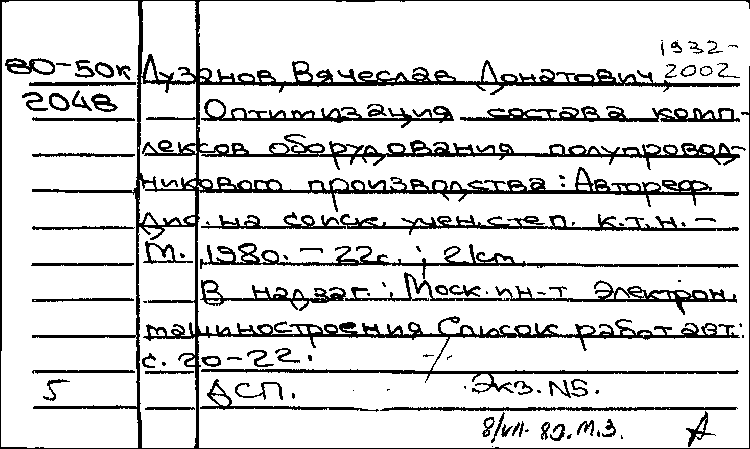 1932-
80-50к Дузанов, Вячеслав Донатович, 2002
2048 Оптимизация состава комп-
лексов оборудования полупровод-
никового производства: Автореф.
дис. на соиск. учен. степ. к.т.н. -
М., 1980. - 22с.; 21см.
В надзаг.: Моск. ин-т электрон.
машиностроения Список работ авт.:
с. 20-22.
5 ДСП. Экз. N5.
8/VII-80. М.З. А